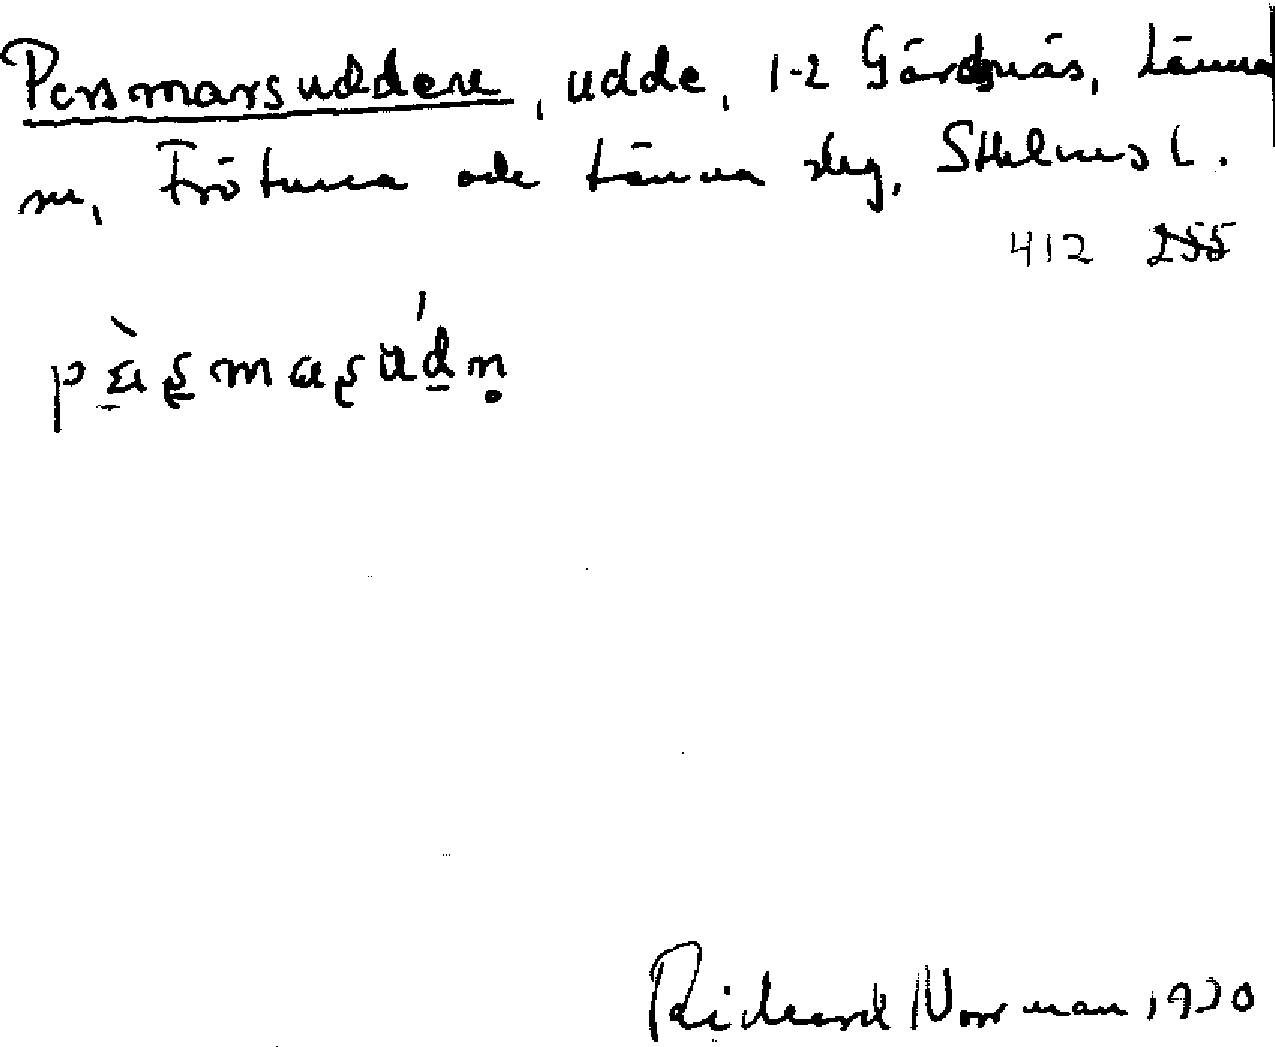 Persmarsudden, udde, 1-2 Gårdsnäs, Länna
sn, Frötuna och Länna slg, Sthlms l.
412 255
pὲʂmaʂúdṇ
Rickard Norrman 1930